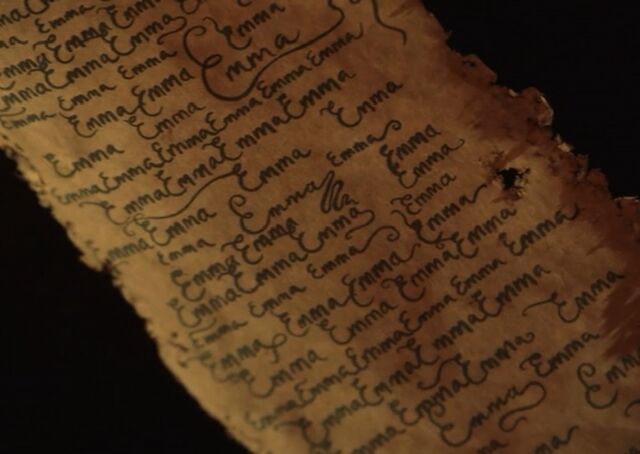 Emma Emma
Emma Emma Emma Emma
Emma Emma Emma Emma
Emma Emma Emma Emma
Emma Emma Emma Emma Emma
Emma Emma Emma Emma Emma
Emma Emma Emma Emma
Emma Emma Emma Emma
Emma Emma Emma Emma
Emma Emma Emma Emma
Emma Emma Emma Emma Emma
Emma Emma Emma Emma Emma
Emma Emma Emma Emma Emma
Emma Emma Emma Emma Emma
Emma Emma Emma Emma Emma
Emma Emma Emma Emma Emma
Emma Emma Emma Emma
Emma Emma Emma
Emma Emma